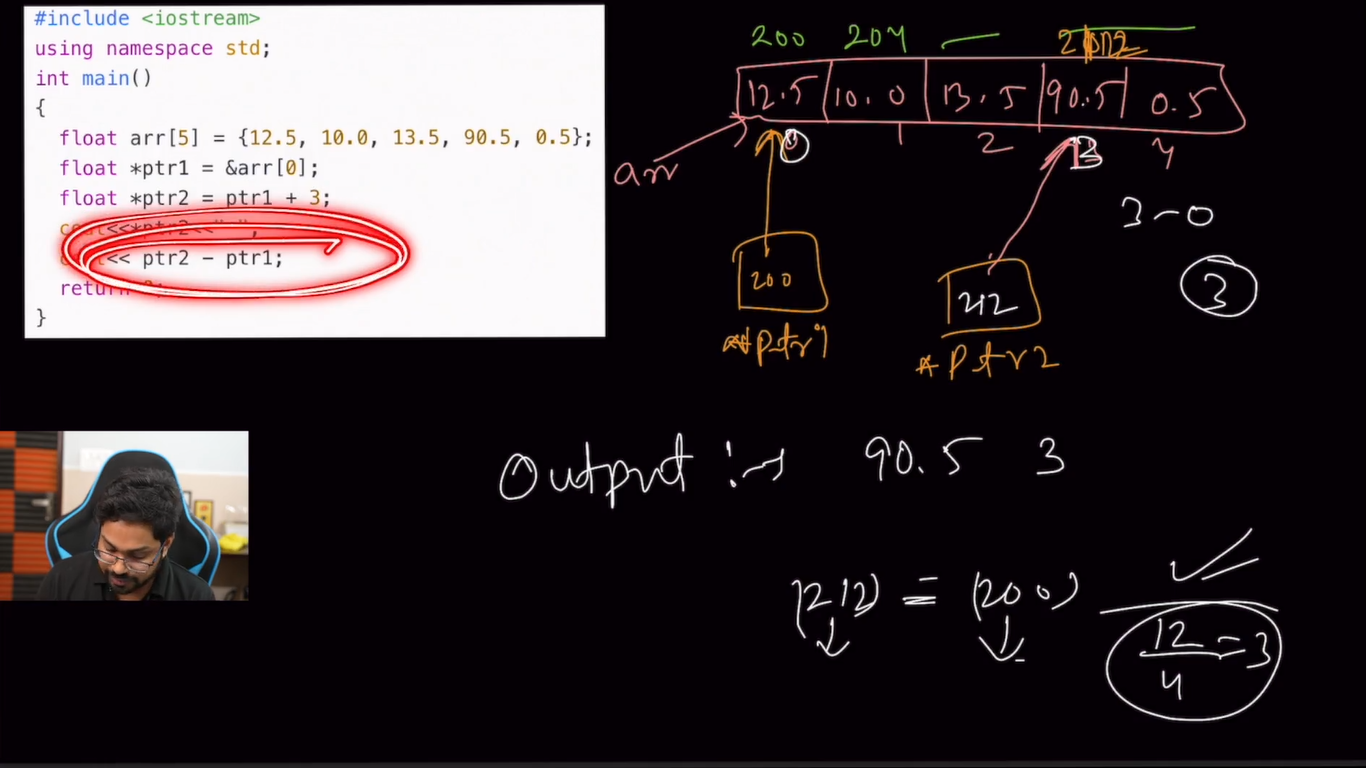 #include <iostream>
using namespace std;
int main()
{
float arr[5] = {12.5, 10.0, 13.5, 90.5, 0.5};
float *ptr1 = &arr[0];
float *ptr2 = ptr1 + 3;
cout<<*ptr2<<" ";
cout<< ptr2 - ptr1;
return 0;
}
200 204
12.5 10.0 13.5 90.5 0.5
0 1 2 3 4
arr
3-0
3
200
212
*ptr1
*ptr2
Output :→ 90.5 3
(212) = (200)
12/4 = 3